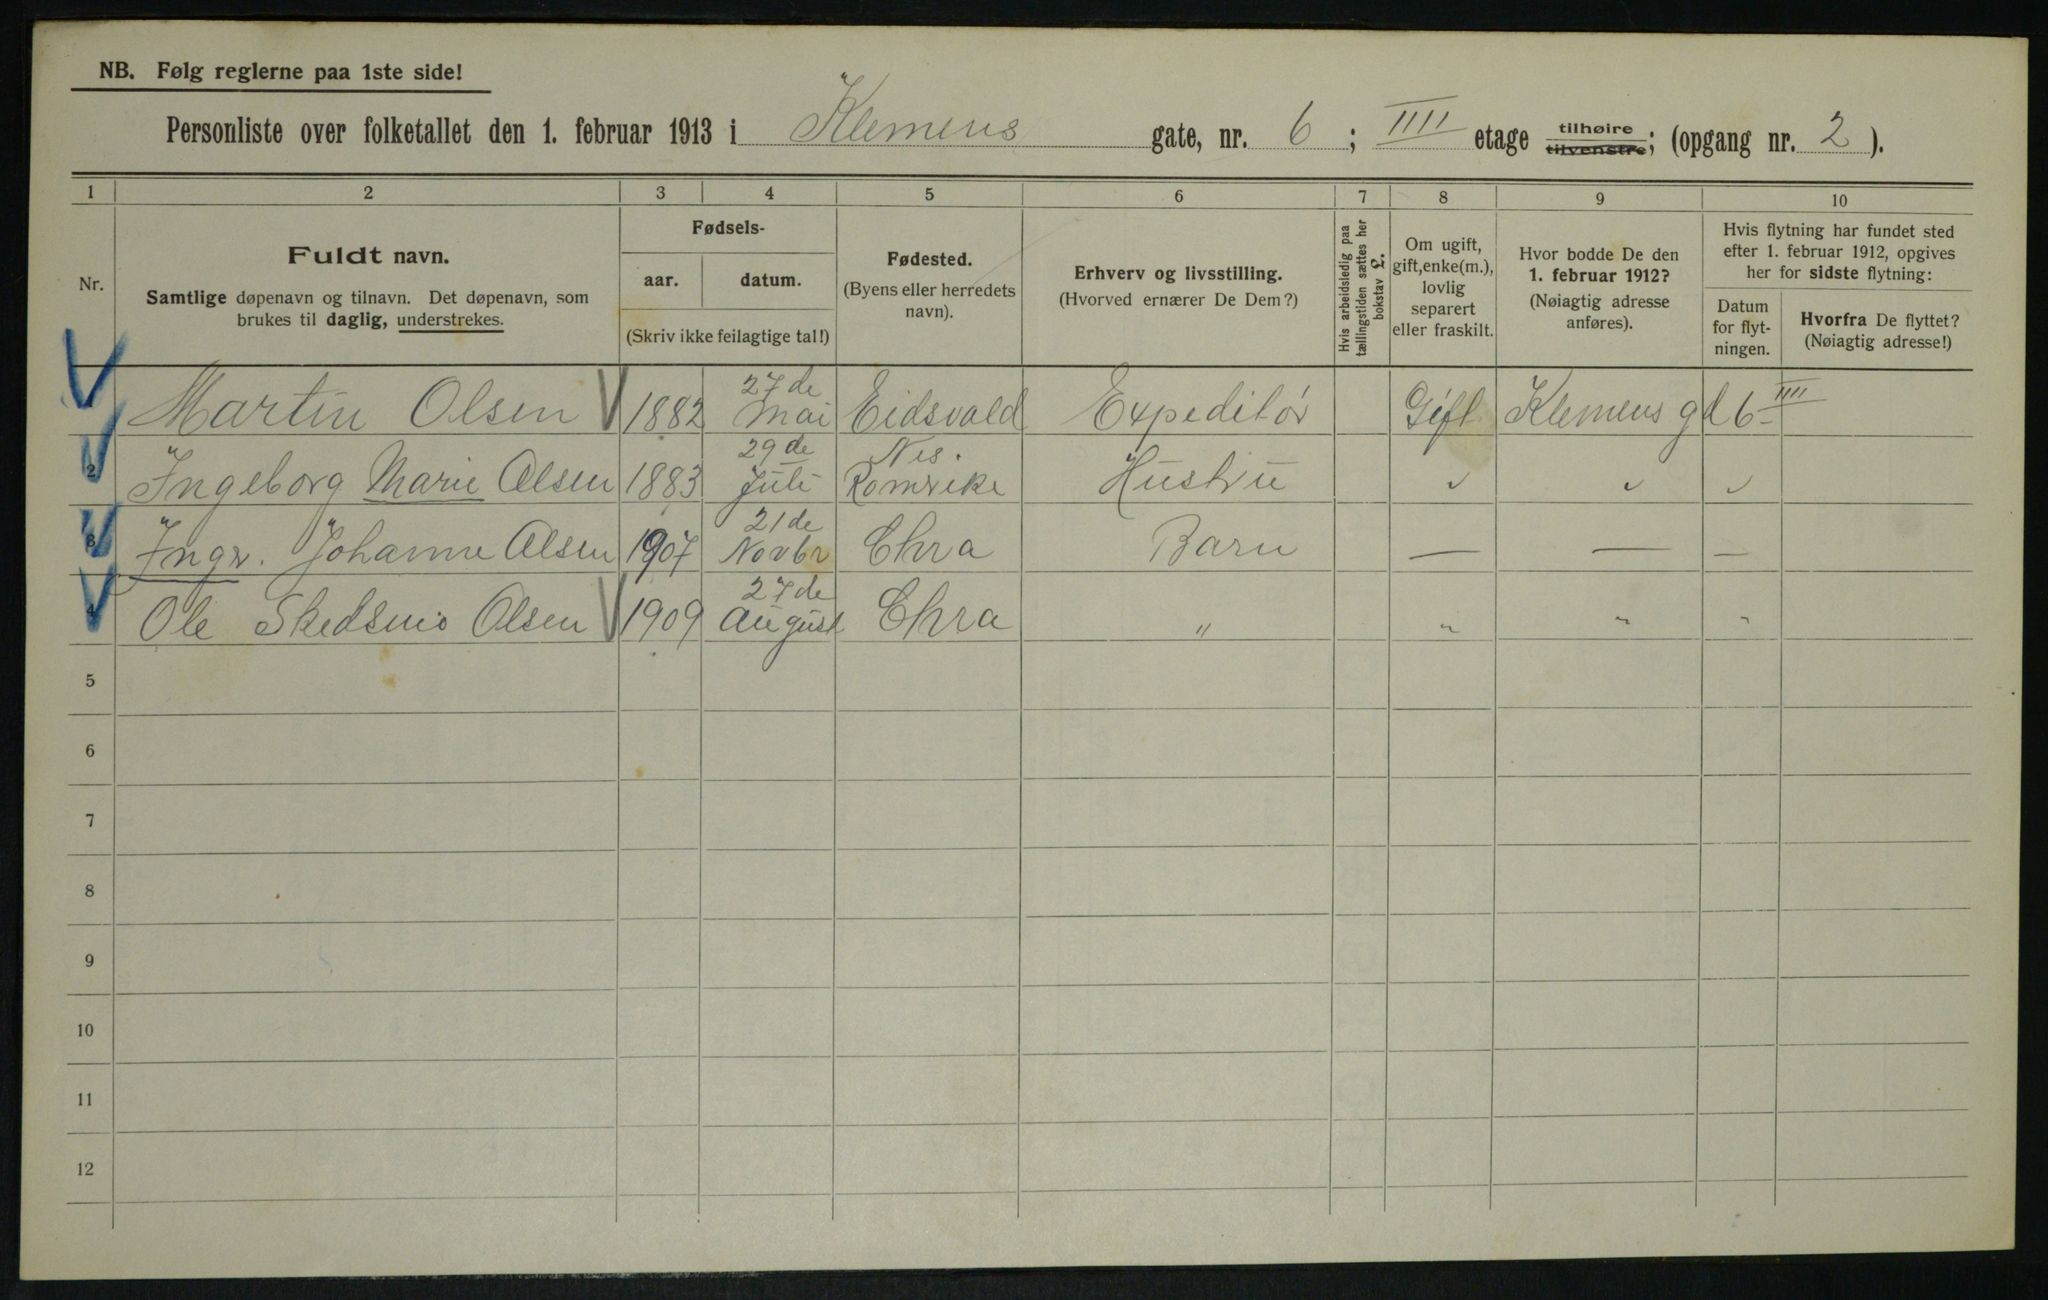 NB. Følg reglerne paa 1ste side!
Personliste over folketallet den 1. februar 1913 i Klemens gate, nr. 6 ; IIII etage tilhøire tilvenstre; (opgang nr. 2 ).
1 2 3 4 5 6 7 8 9 10
Nr.
Fuldt navn.
Samtlige døpenavn og tilnavn. Det døpenavn, som
brukes til daglig, understrekes.
Fødsels-
aar. datum.
(Skriv ikke feilagtige tal!)
Fødested.
(Byens eller herredets
navn).
Erhverv og livsstilling.
(Hvorved ernærer De Dem?)
Hvis arbeidsledig paa
tællingstiden sættes her
bokstav L.
Om ugift,
gift, enke(m.),
lovlig
separert
eller fraskilt.
Hvor bodde De den
1. februar 1912?
(Nøiagtig adresse
anføres).
Hvis flytning har fundet sted
efter 1. februar 1912, opgives
her for sidste flytning:
Datum
for flyt-
ningen.
Hvorfra De flyttet?
(Nøiagtig adresse!)
Martin Olsen 1882 27de Mai Eidsvold Expeditør Gift Klemens gd 6 IIII
2 Ingeborg Marie Olsen 1883 29de Juli Nes. Romerike Hustru
3 Inga. Johanne Olsen 1907 21de Novbr Chra Barn — — —
4 Ole Skedsmo Olsen 1909 27de August Chra " " " "
5
6
7
8
9
10
11
12